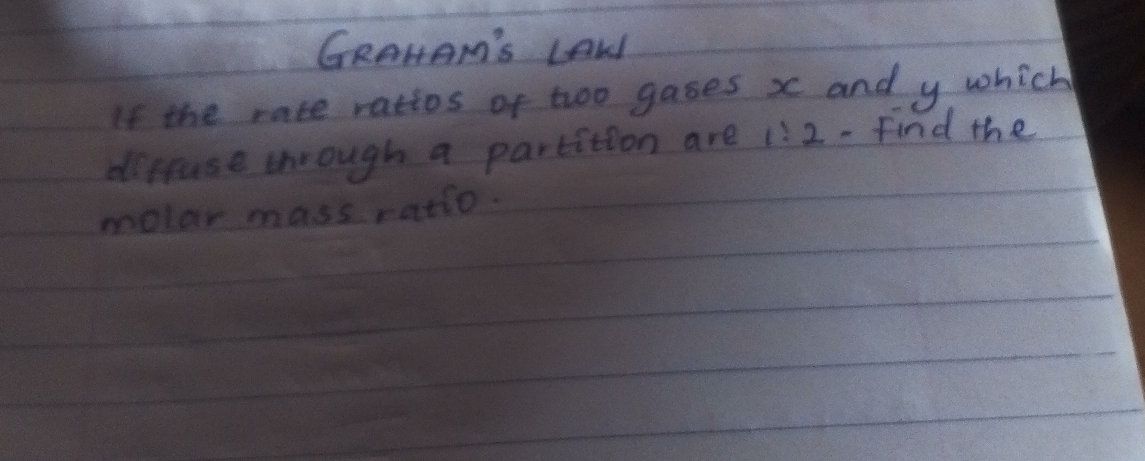 GRAHAM'S LAW
If the rate ratios of two gases x and y which
diffuse through a partition are 1:2 - Find the
molar mass ratio.